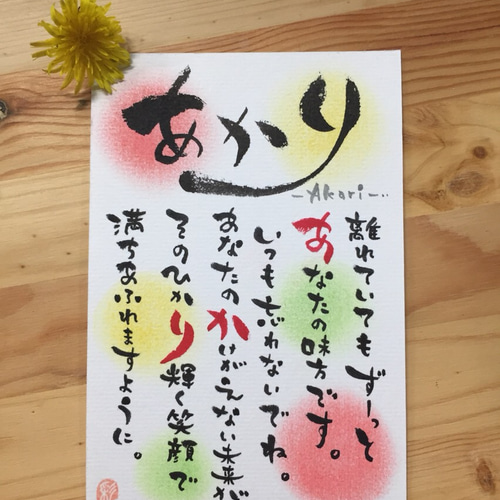 あかり
-Akari-..
離れていてもずーっと
あなたの味方です。
いつも忘れないでね。
あなたのかけがえない未来が
そのひかり輝く笑顔で
満ちあふれますように。